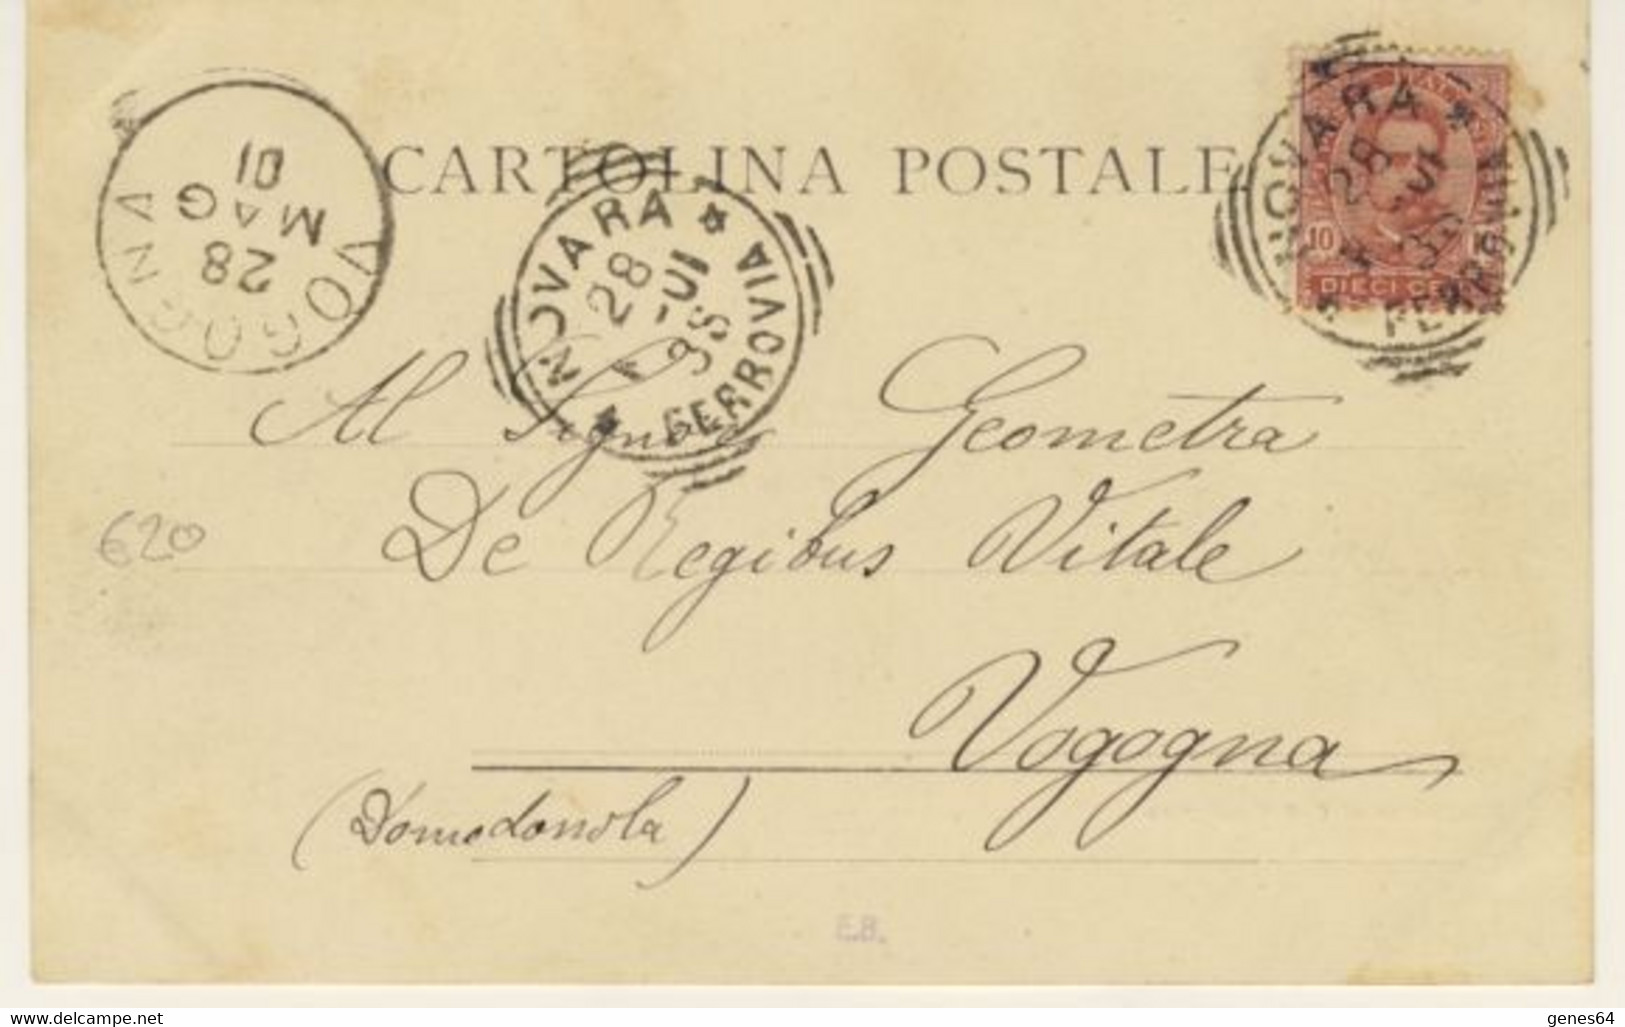 CARTOLINA POSTALE
VOGOGNA
28
MAG
01
NOVARA
FERROVIA
28
NOVARA
28
10
DIECI CE
Al Signor Geometra
De Regibus Vitale
Vogogna
(Domodossola)
620
E.B.
https://www.delcampe.net
genes64